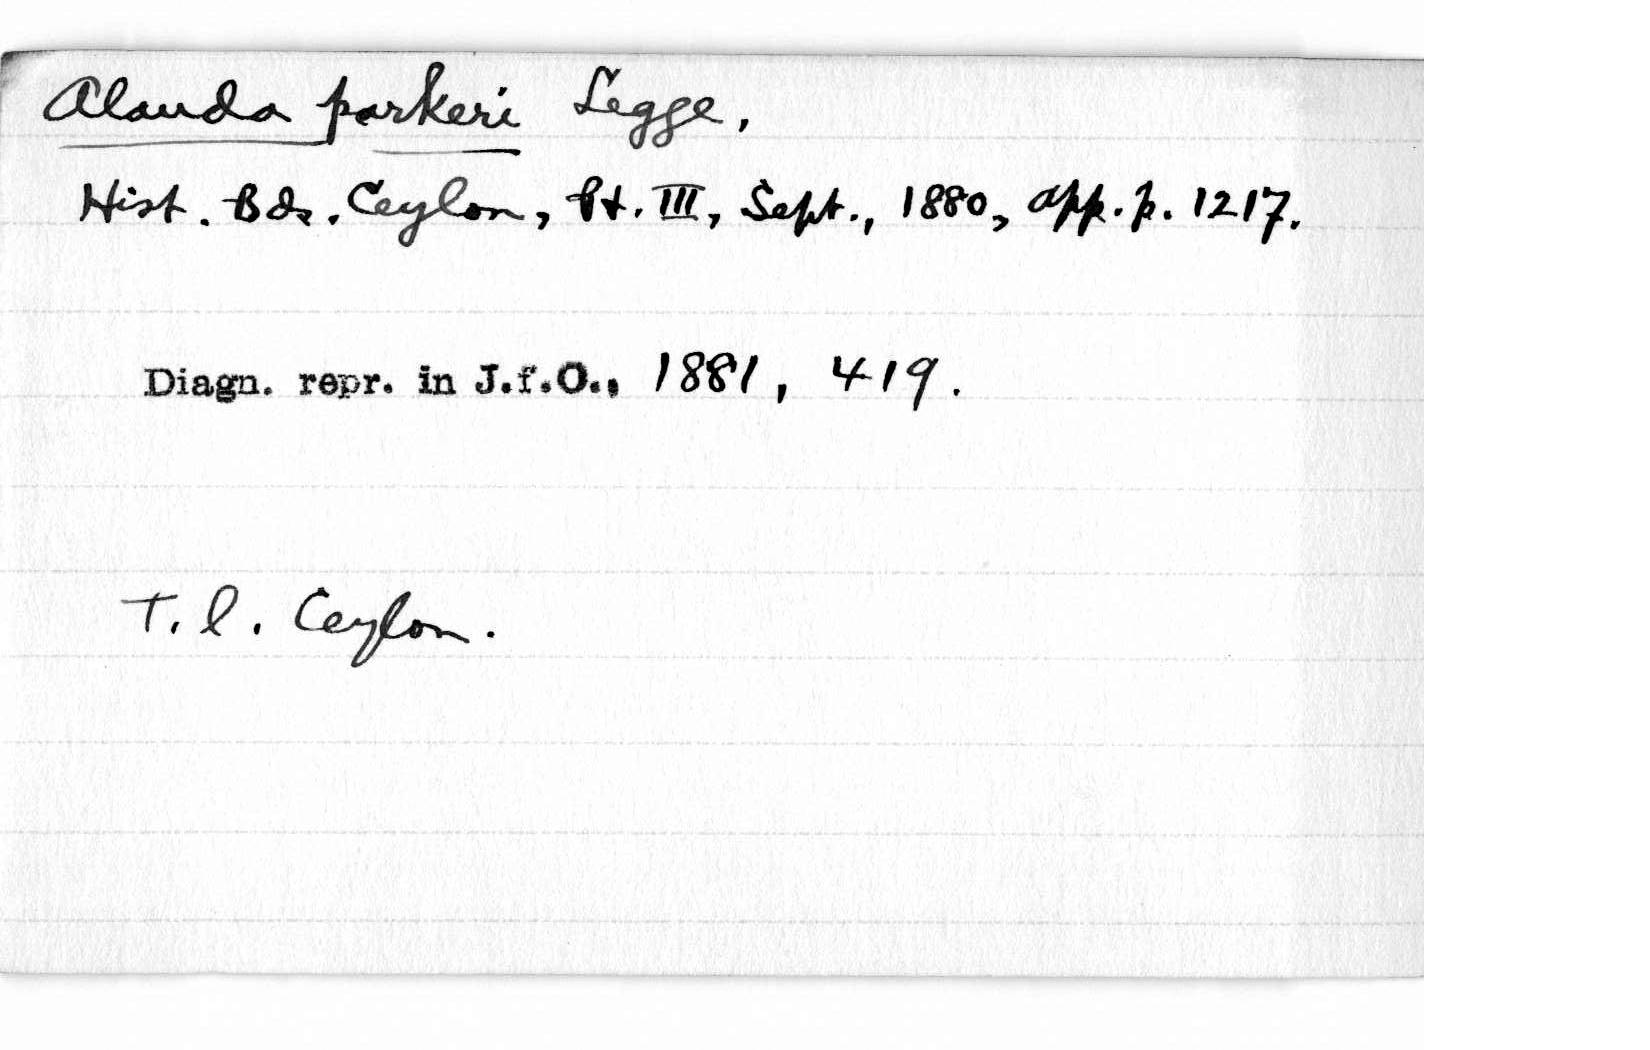 Alauda parkeri Legge,
Hist. Bds. Ceylon, pt. III, Sept., 1880, app. p. 1217.
Diagn. repr. in J.f.O., 1881, 419.
T. l. Ceylon.